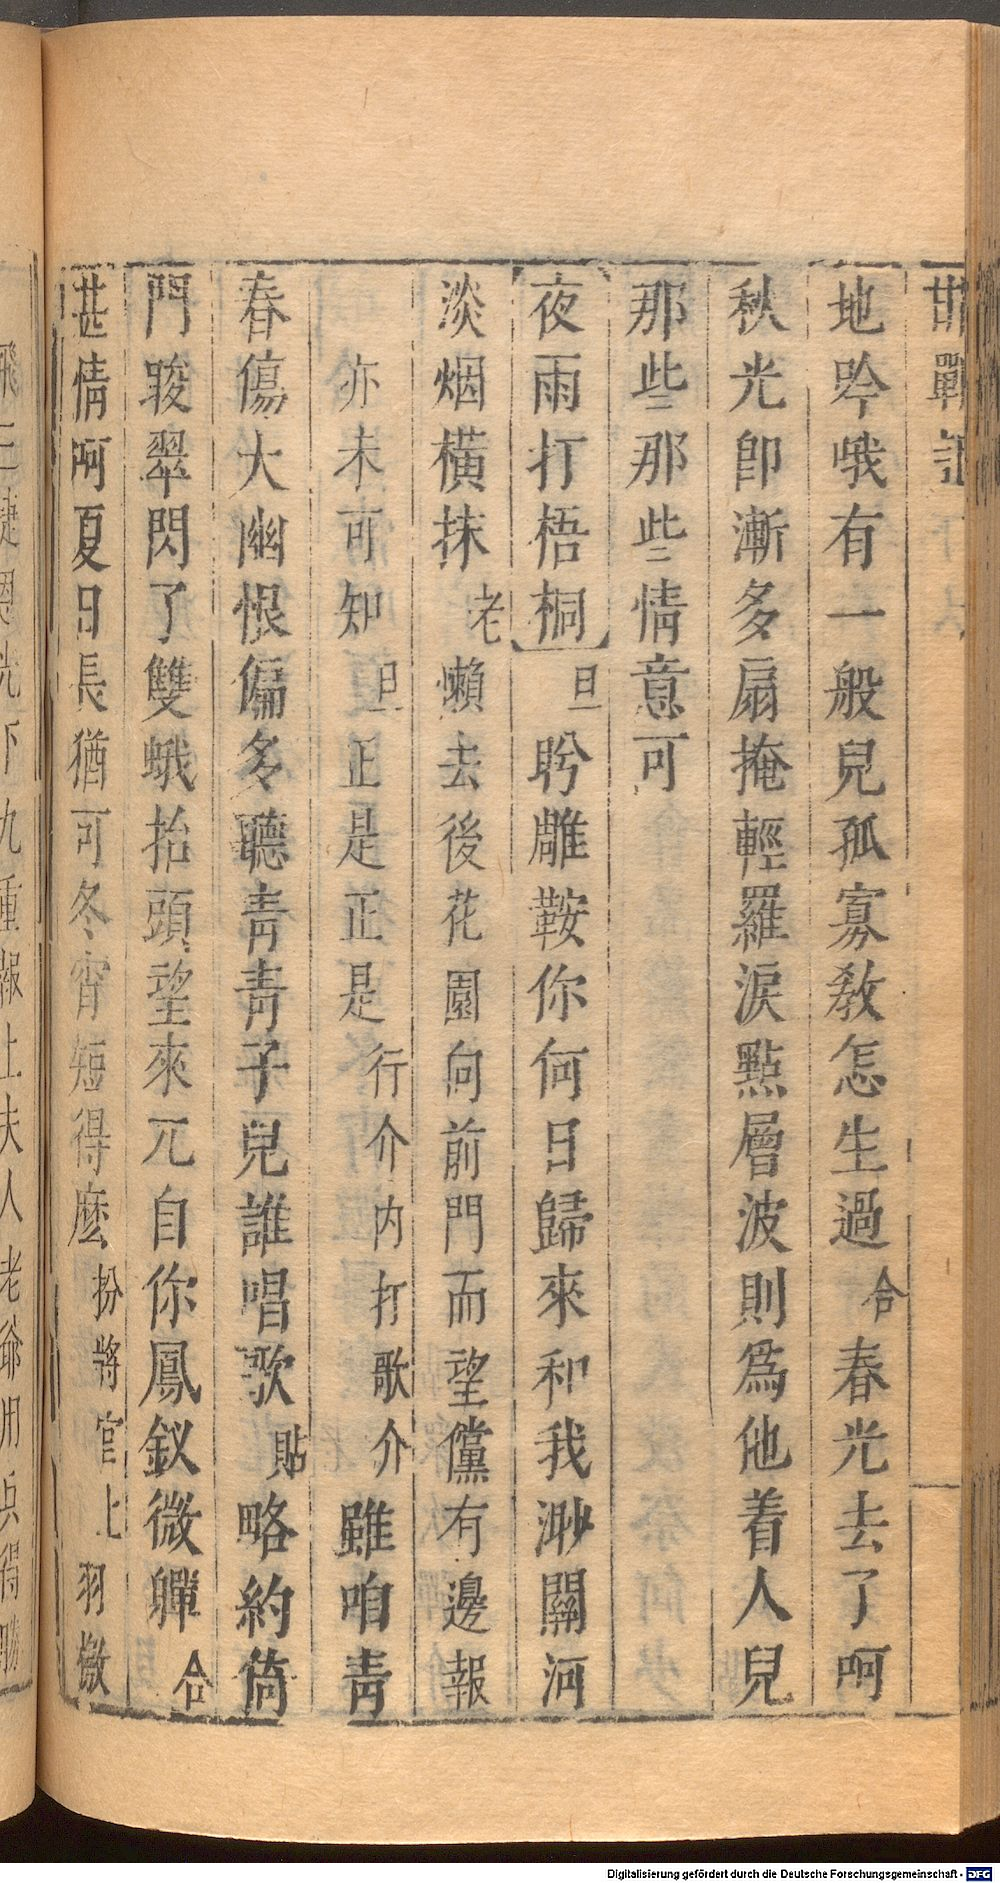 邯鄲記
地吟哦有一般兒孤寡教怎生過合春光去了呵
秋光卽漸多扇掩輕羅淚點層波則爲他着人兒
那些那些情意可
夜雨打梧桐旦盻雕鞍你何日歸來和我渺關河
淡烟橫抹老懶去後花園向前門而望儻有邊報
亦未可知旦正是正是行介內打歌介雖咱靑
春傷大幽恨偏多聽靑靑子兒誰唱歌貼略約倚
門踆翠閃了雙蛾抬頭望來兀自你鳳釵微軃合
甚情呵夏日長猶可冬宵短得麽扮將官上羽檄
飛三捷恩光下九重報上夫人老爺用兵得勝
Digitalisierung gefördert durch die Deutsche Forschungsgemeinschaft - DFG